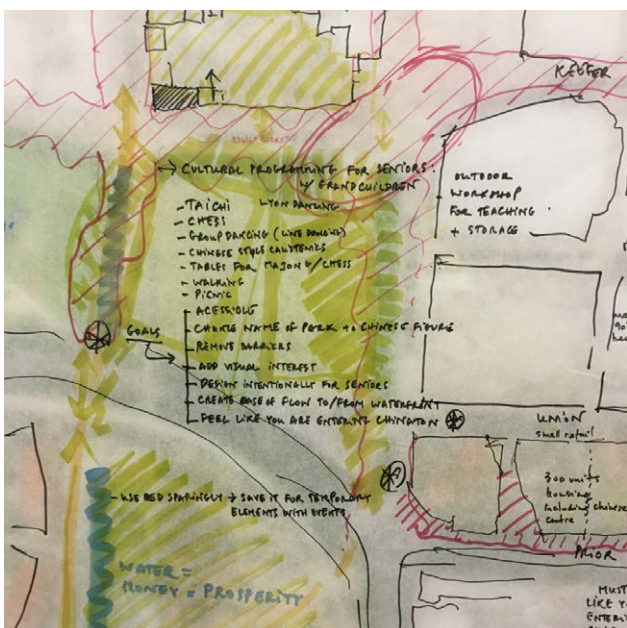 KEEFER
→ CULTURAL PROGRAMMING FOR SENIORS.
W/ GRANDCHILDREN
- TAICHI
LYON DANCING
- CHESS
- GROUP DANCING (LINE DANCING)
- CHINESE STYLE CALISTENICS
- TABLES FOR MAJONG/CHESS
- WALKING
- PICNIC
OUTDOOR
WORKSHOP
FOR TEACHING
+ STORAGE
GOALS
- ACESSIBLE
- CHANGE NAME OF PARK TO CHINESE FIGURE
- REMOVE BARRIERS
- ADD VISUAL INTEREST
- DESIGN INTENTIONALLY FOR SENIORS
- CREATE EASE OF FLOW TO/FROM WATERFRONT
- FEEL LIKE YOU ARE ENTERING CHINATOWN
UNION
small retail
300 units
housing
including chinese
centre
PRIOR
- USE RED SPARINGLY → SAVE IT FOR TEMPORARY
ELEMENTS WITH EVENTS.
WATER =
MONEY = PROSPERITY
MUST
LIKE YO
ENTERI